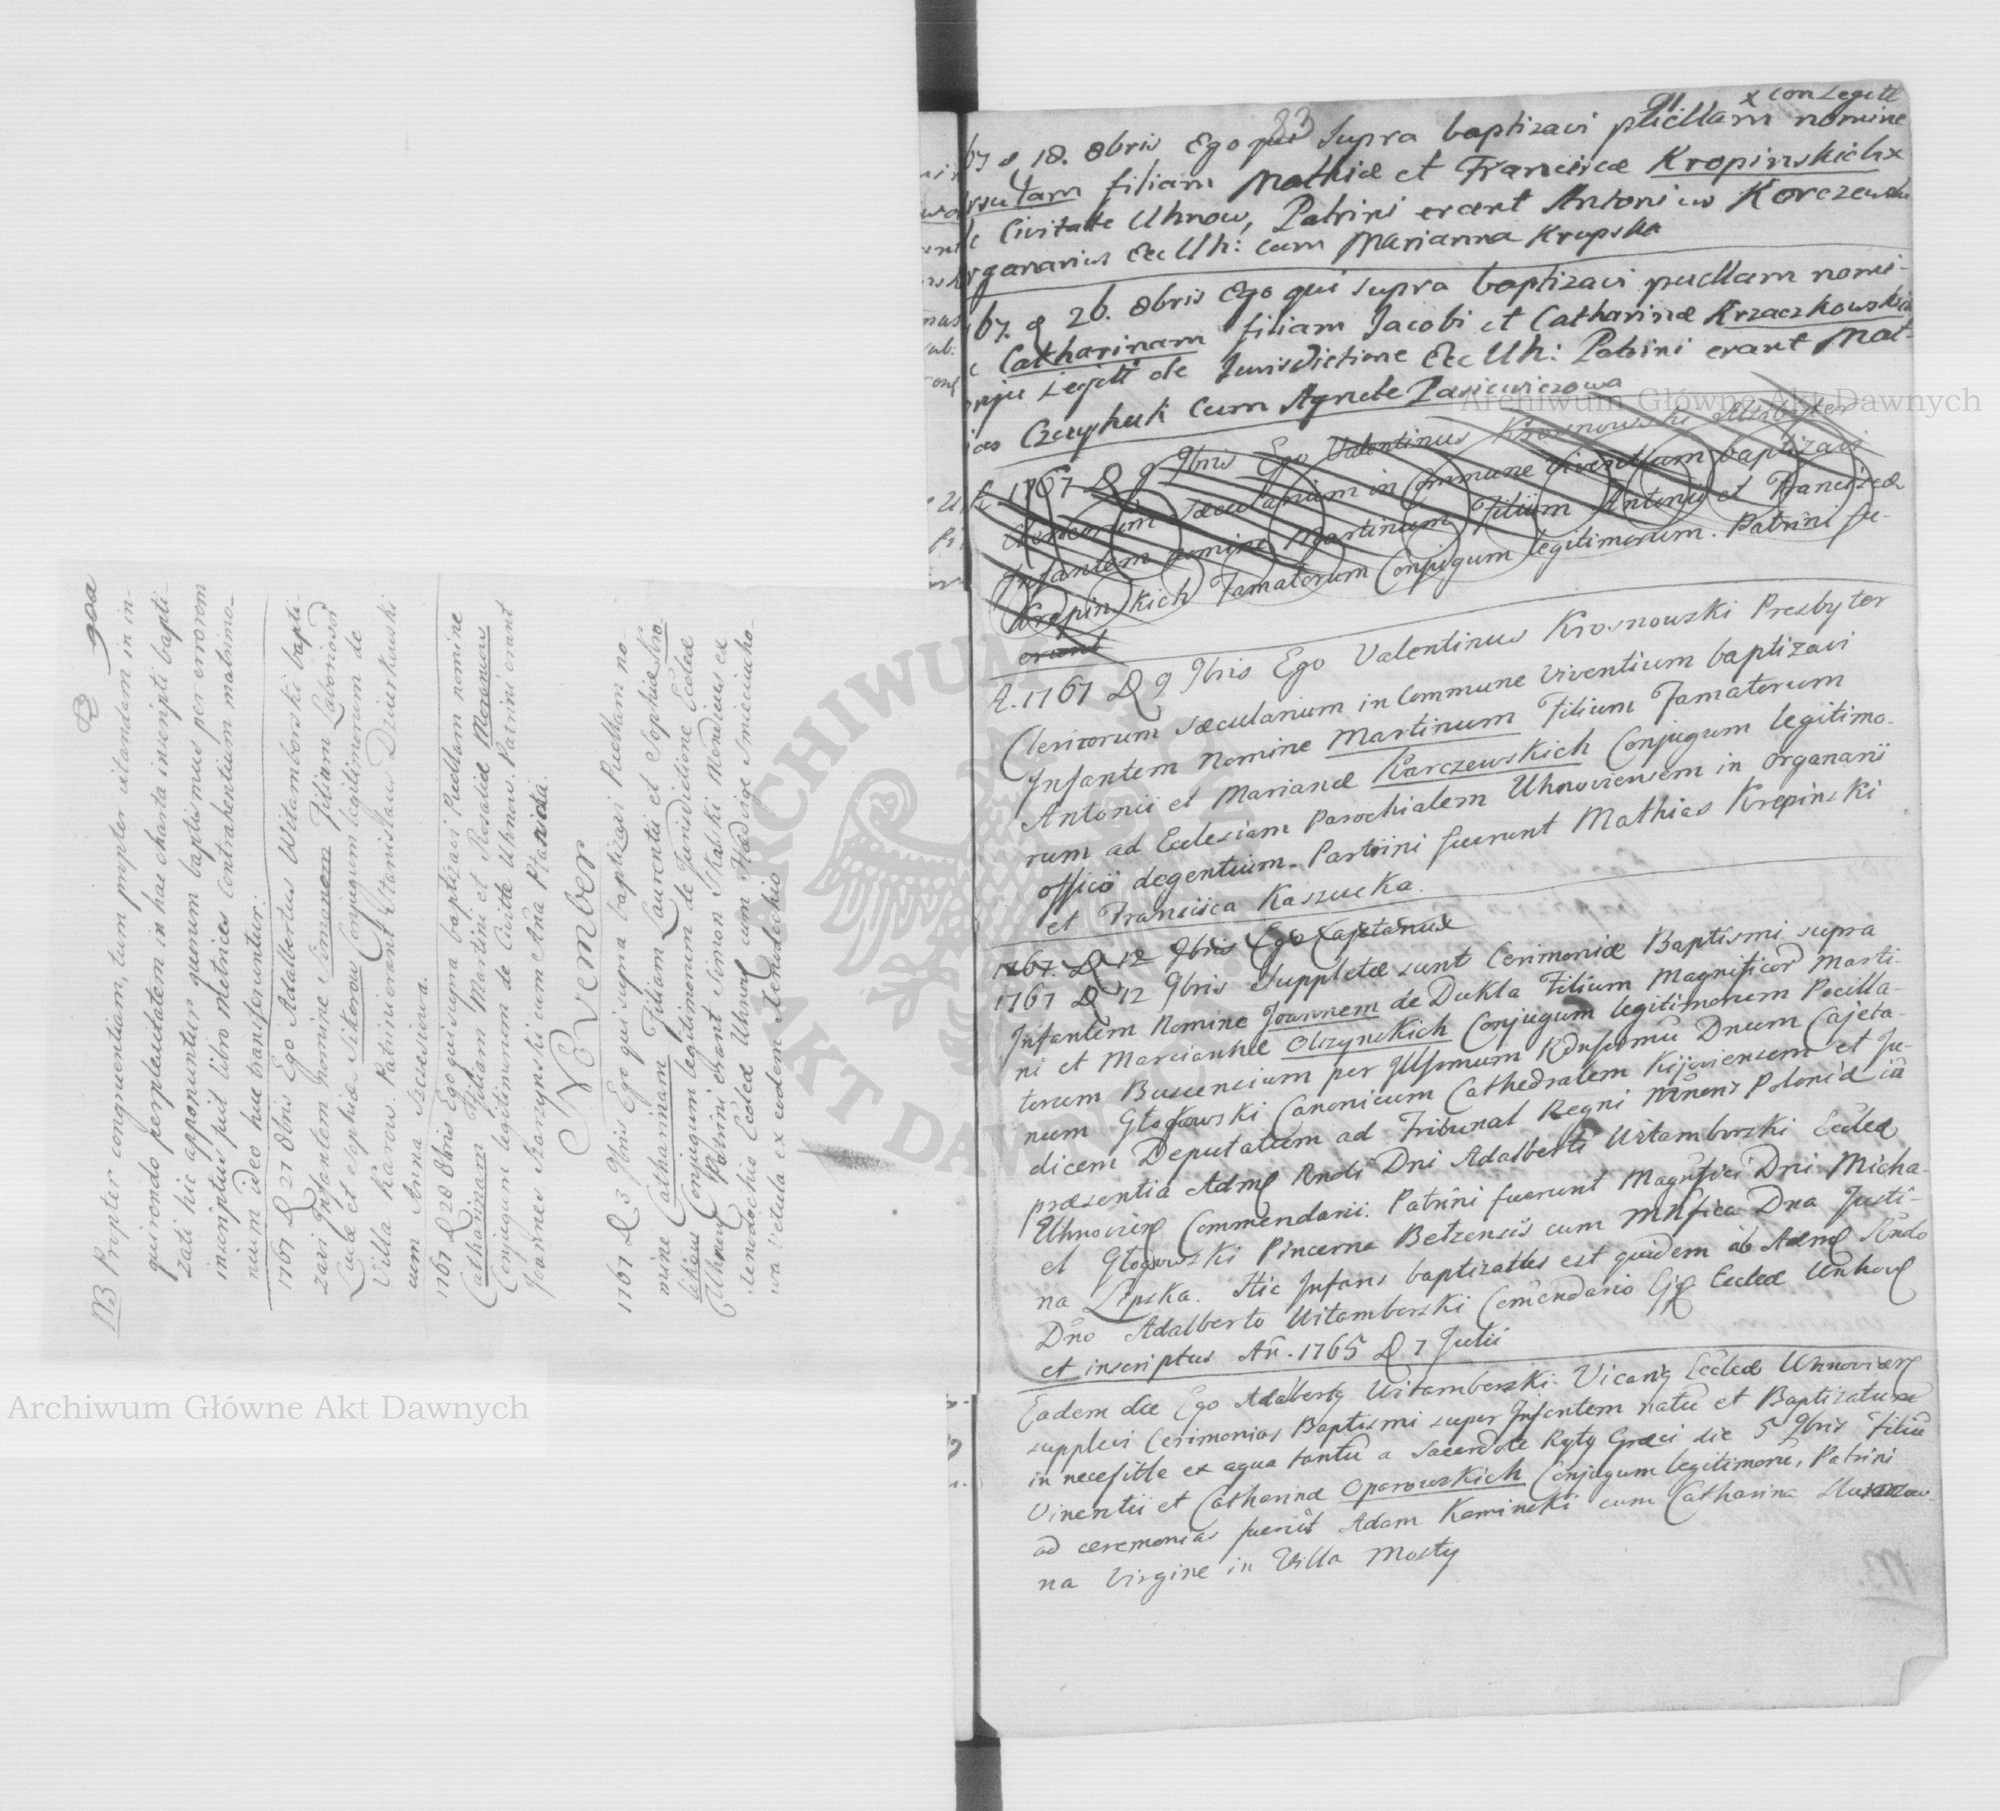 NB Propter congruentiam, tum propter vitandam in in-
quirendo perplexitatem in hac charta inscripti bapti-
zati hic apponuntur quorum baptismus per errorem
inscriptus fuit libro Metrices Contrahentium matrimo-
nium ideo huc transferuntur.
1767 D 27 8bris Ego Adalbertus Witamborski bapti-
zavi Infantem nomine Simonem Filium Laboriosor
Lucae et Sophiae Sikorow Conjugum legitimorum de
Villa Karow. Patrini erant Stanislaus Dziurkowski
cum Anna
1767 D 28 8bris Ego qui supra baptizavi Puellam nomine
Catharinam Filiam Martini et Rosaliae
Conjugum legitimorum de Civitte Uhnow. Patrini erant
Joannes cum Anna
November
1767 D 3 9bris Ego qui supra baptizavi Puellam no-
mine Catharinam Filiam Laurentii et Sophiae
Conjugum legitimorum de Jurisdictione Ecclae
Uhnov Patrini erant Simon Skalski Mendicus ex
Xenodochio Ecclae Uhnov cum Hadvige
wa Vidula ex eodem Xenodochio
83
x Con Legitt
67 D 18. 8bris Ego qui supra baptizavi puellam nomine
rsulam filiam Mathiae et Franciscae Kropinskich x
Civitate Uhnow, Patrini erant Antonius Korczewski
rganarius Ecc Uh: cum Marianna Krupska
67. D 26. 8bris Ego qui supra baptizavi puellam nomi-
Catharinam filiam Jacobi et Catharinae Krzaczkowskich
Legitt de Jurisdictione Ecc Uh: Patrini erant Mat-
ias cum Agnete Pasiewiczowa
1767 D 9 9bris Ego Valentinus Krosnowski Presbyter
Clericorum saecularium in Commune viventium baptizavi
Infantem nomine Martinum Filium Antonii et Franciscae
Krepinskich Famatorum Conjugum legitimorum. Patrini fu-
erunt
A. 1767 D 9 9bris Ego Valentinus Krosnowski Presbyter
Clericorum saecularium in Commune Viventium baptizavi
Infantem Nomine Martinum Filium Famatorum
Antonii et Marianae Karczewskich Conjugum legitimo-
rum ad Ecclesiam Parochialem Uhnoviensem in organarii
officio degentium. Partrini fuerunt Mathias Krepinski
et Francisca Kaszucka.
1767. D 12 9bris Ego Cajetanus
1767 D 12 9bris Suppletae sunt Cerimoniae Baptismi supra
Infantem Nomine Joannem de Dukla Filium Magnificor Marti-
ni et Marciannae Olszynskich Conjugum legitimorum Pocilla-
torum Buscensium per Illsmum Rdnssmu Dnum Cajeta-
num Głogowski Canonicum Cathedralem Kijoviensem et Ju-
dicem Deputatum ad Tribunal Regni Poloniae in
praesentia Adm Rndi Dni Adalberti Witamborski Ecclae
Uhnovien Commendarii. Patrini fuerunt Magnifici Dni Micha-
el Głogowski Pincerna Betzensis cum Mnfica Dna Justi-
na Lipska. Hic Infans baptizatus est quidem ab Adm Rndo
Dno Adalberto Witamborski Comendario Ejq Ecclae Unhov
et inscriptus An. 1765 D 7 Julii
Eadem die Ego Adalbertq Witamberski Vicariq Ecclae Uhnovien
supplevi Cerimonias Baptismi super Infantem natu et Baptizatum
in necessitte ex aqua tantu a Sacerdote Rytq Graeci die 5 9bris Filiu
Vincentii et Catharinae Oparowskich Conjugum legitimoru, Patrini
ad ceremonias fuerut Adam Kaminski cum Catharina
na Virgine in Villa Mosty
Archiwum Główne Akt Dawnych
Archiwum Główne Akt Dawnych